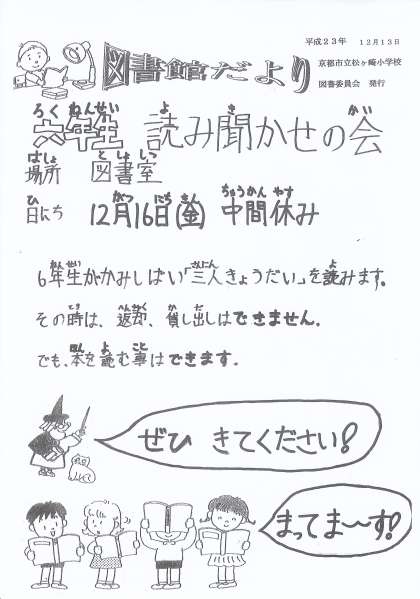 平成23年 12月13日
図書館だより
京都市立松ヶ崎小学校
図書委員会 発行
ろくねんせい よ き かい
六年生 読み聞かせの会
ばしょ としょしつ
場所 図書室
ひ がつ にち きん ちゅうかんやす
日にち 12月16日(金) 中間休み
ねんせい さんにん よ
6年生がかみしばい「三人きょうだい」を読みます。
とき へんきゃく か だ
その時は、返却、貸し出しはできません。
ほん よ こと
でも、本を読む事はできます。
ぜひ きてください!
まってま〜す!